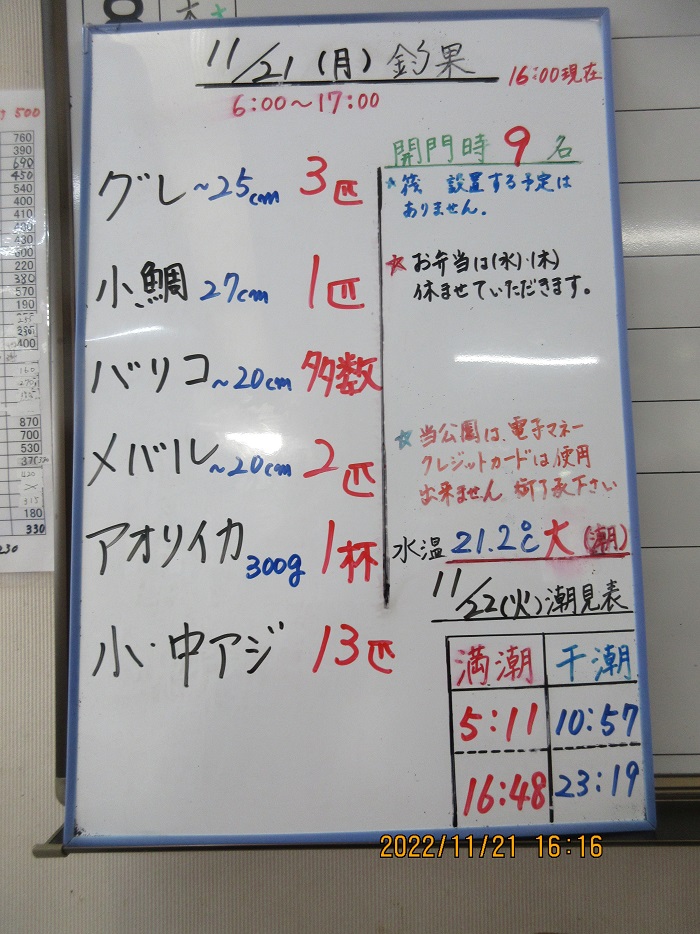 11/21(月)釣果
16:00現在
6:00～17:00
グレ～25cm 3匹
小鯛 27cm 1匹
バリコ～20cm 多数
メバル～20cm 2匹
アオリイカ 300g 1杯
小・中アジ 13匹
開門時 9名
*筏 設置する予定は
ありません。
☆お弁当は(水)・(木)
休ませていただきます。
☆当公園は、電子マネー
クレジットカードは使用
出来ません 御了承下さい
水温 21.2℃ 大(潮)
11/22(火)潮見表
満潮 干潮
5:11 10:57
16:48 23:19
500
760
390
690
450
540
400
410
430
430
600
220
380
570
190
400
870
700
530
180
330
230
2022/11/21 16:16